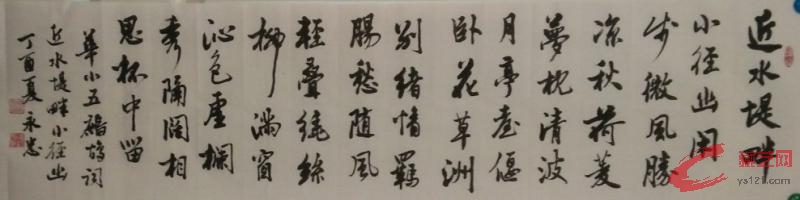 近水堤畔
小径幽闲
步微风胜
凉秋荷菱
梦枕清波
月亭台偃
卧花草洲
别绪情羁
肠愁随风
轻叠绕丝
柳满窗
沁色虚栏
秀隔阔相
思杯中留
華小五鹧鸪词
近水堤畔小径幽
丁酉夏永忠
ys121.com